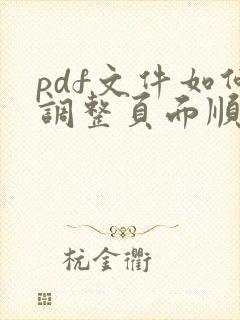 pdf文件如何
調整頁面順
杭金衢